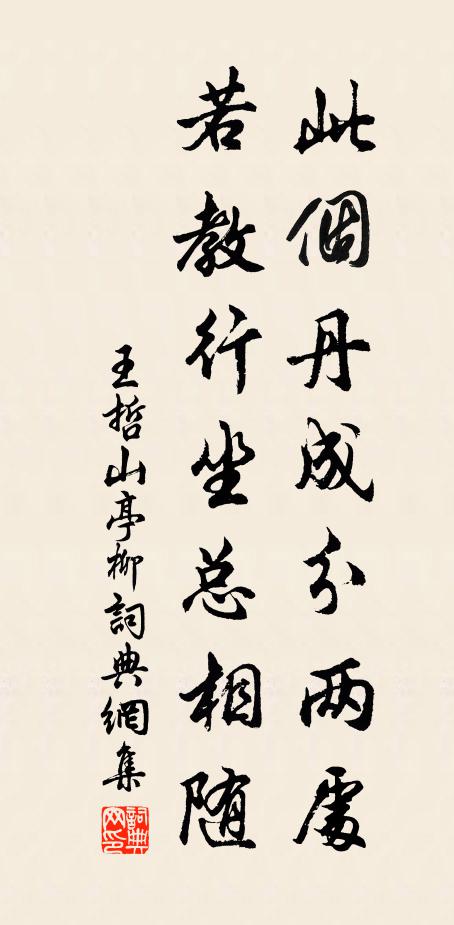 此個丹成分两處
若教行坐总相随
王哲山亭柳詞典網集
詞典網印